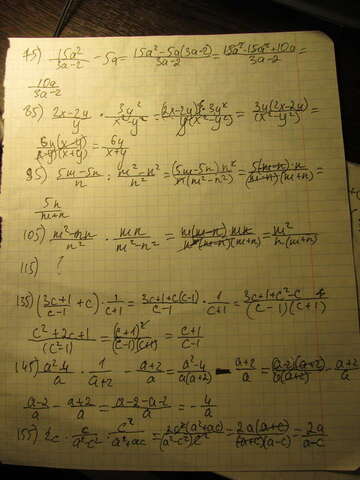 75) 15a²/(3a-2) - 5a = (15a²-5a(3a-2))/(3a-2) = (15a²-15a²+10a)/(3a-2) =
10a/(3a-2)
85) (2x-2y)/y · 3y²/(x²-y²) = ((2x-2y) 3y²)/(y(x²-y²)) = (3y(2x-2y))/(x²-y²) =
(6y(x-y))/((x-y)(x+y)) = 6y/(x+y)
95) (5m-5n)/n : (m²-n²)/n² = ((5m-5n)n²)/(n(m²-n²)) = (5(m-n)n)/((m-n)(m+n)) =
5n/(m+n)
105) (m²-mn)/n² · mn/(m²-n²) = (m(m-n) mn)/(n²(m-n)(m+n)) = m²/(n(m+n))
115) ?
135) ((3c+1)/(c-1) + c) · 1/(c+1) = (3c+1+c(c-1))/(c-1) · 1/(c+1) = (3c+1+c²-c)/((c-1)(c+1)) =
(c²+2c+1)/(c²-1) = (c+1)²/((c-1)(c+1)) = (c+1)/(c-1)
145) (a²-4)/a · 1/(a+2) - (a+2)/a = (a²-4)/(a(a+2)) - (a+2)/a = ((a-2)(a+2))/(a(a+2)) - (a+2)/a =
(a-2)/a - (a+2)/a = (a-2-a-2)/a = -4/a
155) 2c · c/(a²-c²) : c²/(a²+ac) = (2c²(a²+ac))/((a²-c²)c²) = (2a(a+c))/((a+c)(a-c)) = 2a/(a-c)